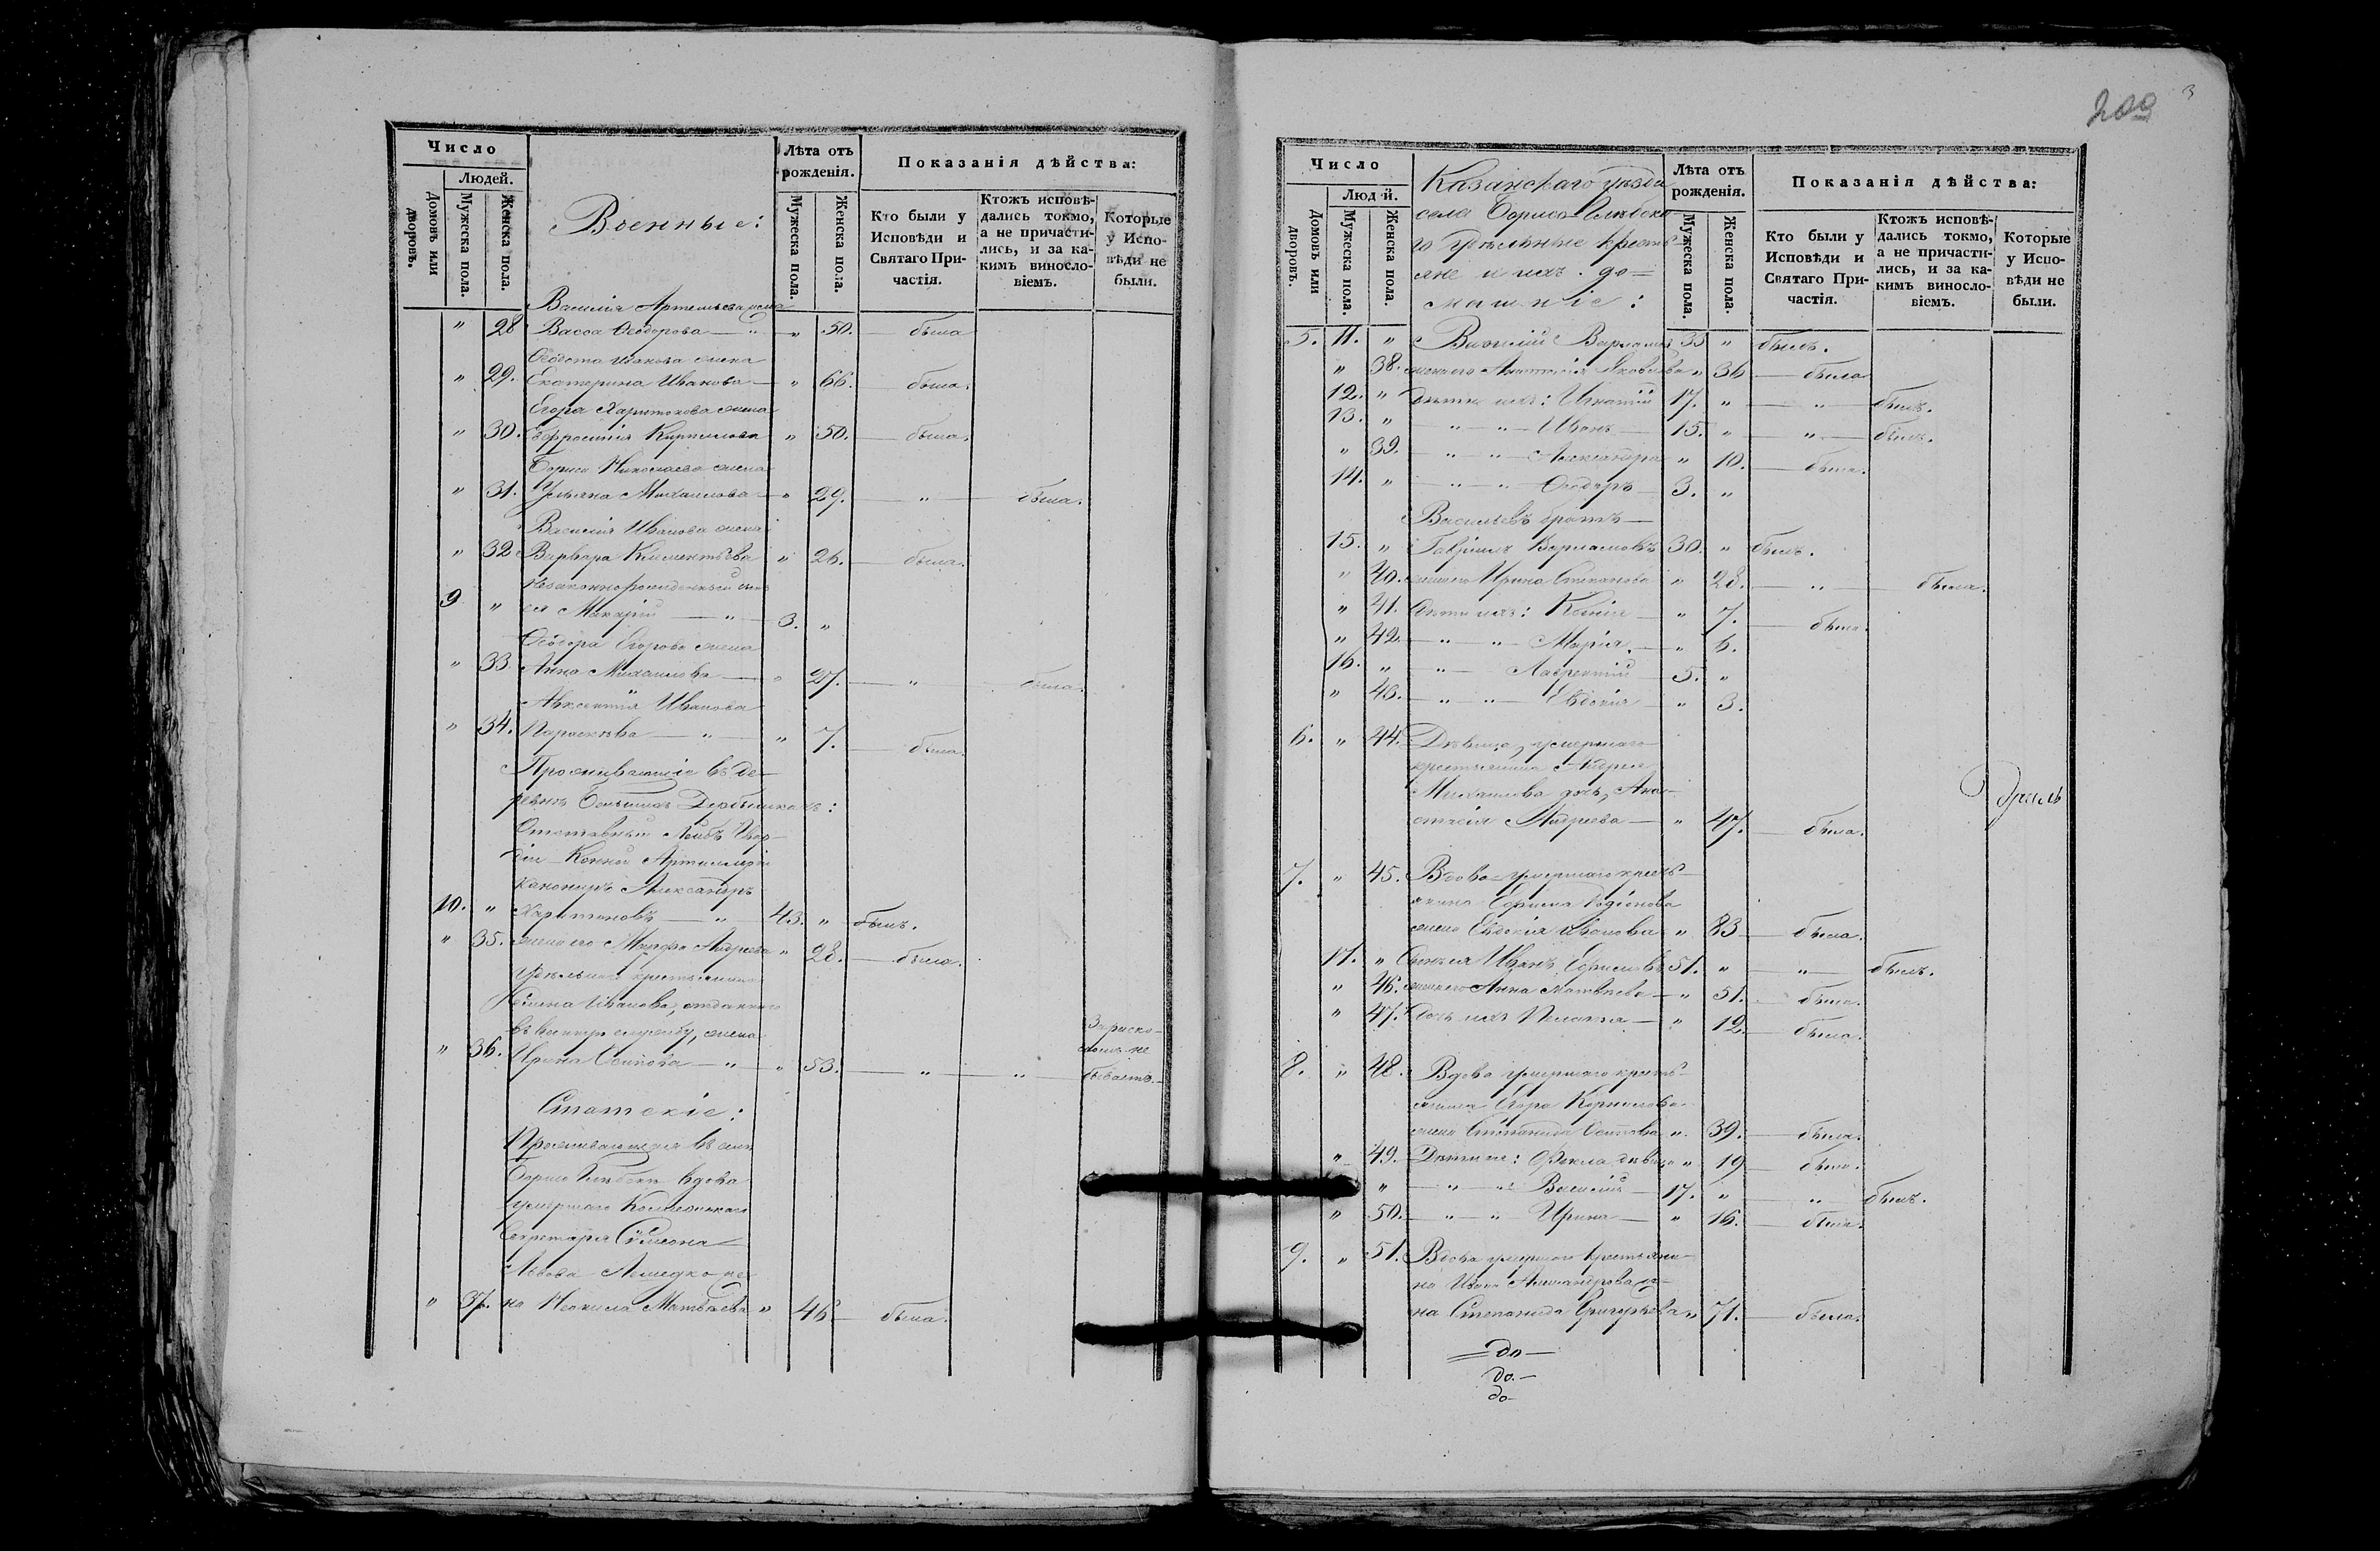 Число
Людей.
Домовъ или дворовъ.
Мужеска пола.
Женска пола.
Военные:
Лѣта отъ рожденія.
Мужеска пола.
Женска пола.
Показанія дѣйства:
Кто были у Исповѣди и Святаго Причастія.
Ктожъ исповѣдались токмо, а не причастились, и за какимъ винословіемъ.
Которые у Исповѣди не были.
Василія Артемьева жена
" 28 Васса Ѳеодорова — " — " 50. — была
Ѳеодота Исакова жена
" 29. Екатерина Иванова — " 66. — была.
Егора Харитонова жена
" 30. Евфросинія Кирилова " 50. — была.
Бориса Николаева жена
" 31. Ульяна Михаилова — " 29. — " — была.
Василія Иванова жена
" 32 Варвара Климентьева " 26. — была.
Незаконнорожденный сынъ
9 " ея Макарій — " — 3. "
Ѳеодора Егорова жена
" 33. Анна Михаилова — " 27. — " — была.
Авксентія Иванова
" 34. Параскева — " — " 7. — была.
Проживающіе въ де-
ревнѣ Большихъ Дербышкахъ:
Отставный Лейбъ Гвар-
діи Конной Артиллеріи
канониръ Александръ
10. " Харитоновъ — " — 43. " былъ.
" 35. жена его Марфа Андреева " 28. — была.
Удѣльнаго крестьянина
Иванова, отданнаго
въ военную службу, жена
" 36. Ирина Осипова — " — " 53. — " — " — За раско-
ломъ не
бываетъ.
Статскіе:
Проживающая въ селѣ
Борисо Глѣбскѣ вдова
умершаго Коллежскаго
Секретаря Сѵмеона
Львова
" 37. на Неонила Матвѣева " 46. — была.
200
3
Число
Людей.
Домовъ или дворовъ.
Мужеска пола.
Женска пола.
Казанскаго уѣзда
села Борисо-Глѣбска-
го Удѣльные кресть-
яне и ихъ до=
машніе:
Лѣта отъ рожденія.
Мужеска пола.
Женска пола.
Показанія дѣйства:
Кто были у Исповѣди и Святаго Причастія.
Ктожъ исповѣдались токмо, а не причастились, и за какимъ винословіемъ.
Которые у Исповѣди не были.
5. 11. " Василій Варламовъ 35 " былъ.
" 38. жена его Анастасія Яковлева " 36 — была
12. " дѣти ихъ: Игнатій 17. " — " — былъ.
13. " — " — " — Иванъ — 15. " — " — былъ.
" 39. — " — " — Александра " 10. — была.
14. " — " — " — Ѳеодоръ — 3. "
Васильевъ братъ —
15. " Гавріилъ Варламовъ 30. " былъ.
" 40. жена его Ирина Степанова " 28. — " — была.
" 41. дѣти ихъ: Ксенія — " 7. — была.
" 42. — " — " — Марія. — " 6.
16. " — " — Лаврентій — 5. "
" 43. — " — " — Евдокія — " 3.
6. " 44. Дѣвица, умершаго
крестьянина Андрея
Михаилова дочь, Ана-
стасія Андреева — " 47. — была.
7. " 45. Вдова умершаго кресть-
янина Ефрема Родіонова
жена Евдокія Иванова " 83 — была.
17. " Сынъ ея Иванъ Ефремовъ 51. " — " — былъ.
" 46. жена его Анна Матвѣева — " 51. — была.
" 47. дочь ихъ Пелагія — " 12. — была.
8. " 48. Вдова умершаго кресть-
янина Егора Корнилова
жена Степанида Осипова " 39. — была.
" 49. Дѣти ея: Ѳекла дѣвица " 19 — была.
" — " — " Василій — 17. " — " — былъ.
" 50. — " — " Ирина — " 16. — была.
9. " 51. Вдова умершаго крестьяни-
на Ивана Александрова же-
на Степанида Григорьева " 71. — была.